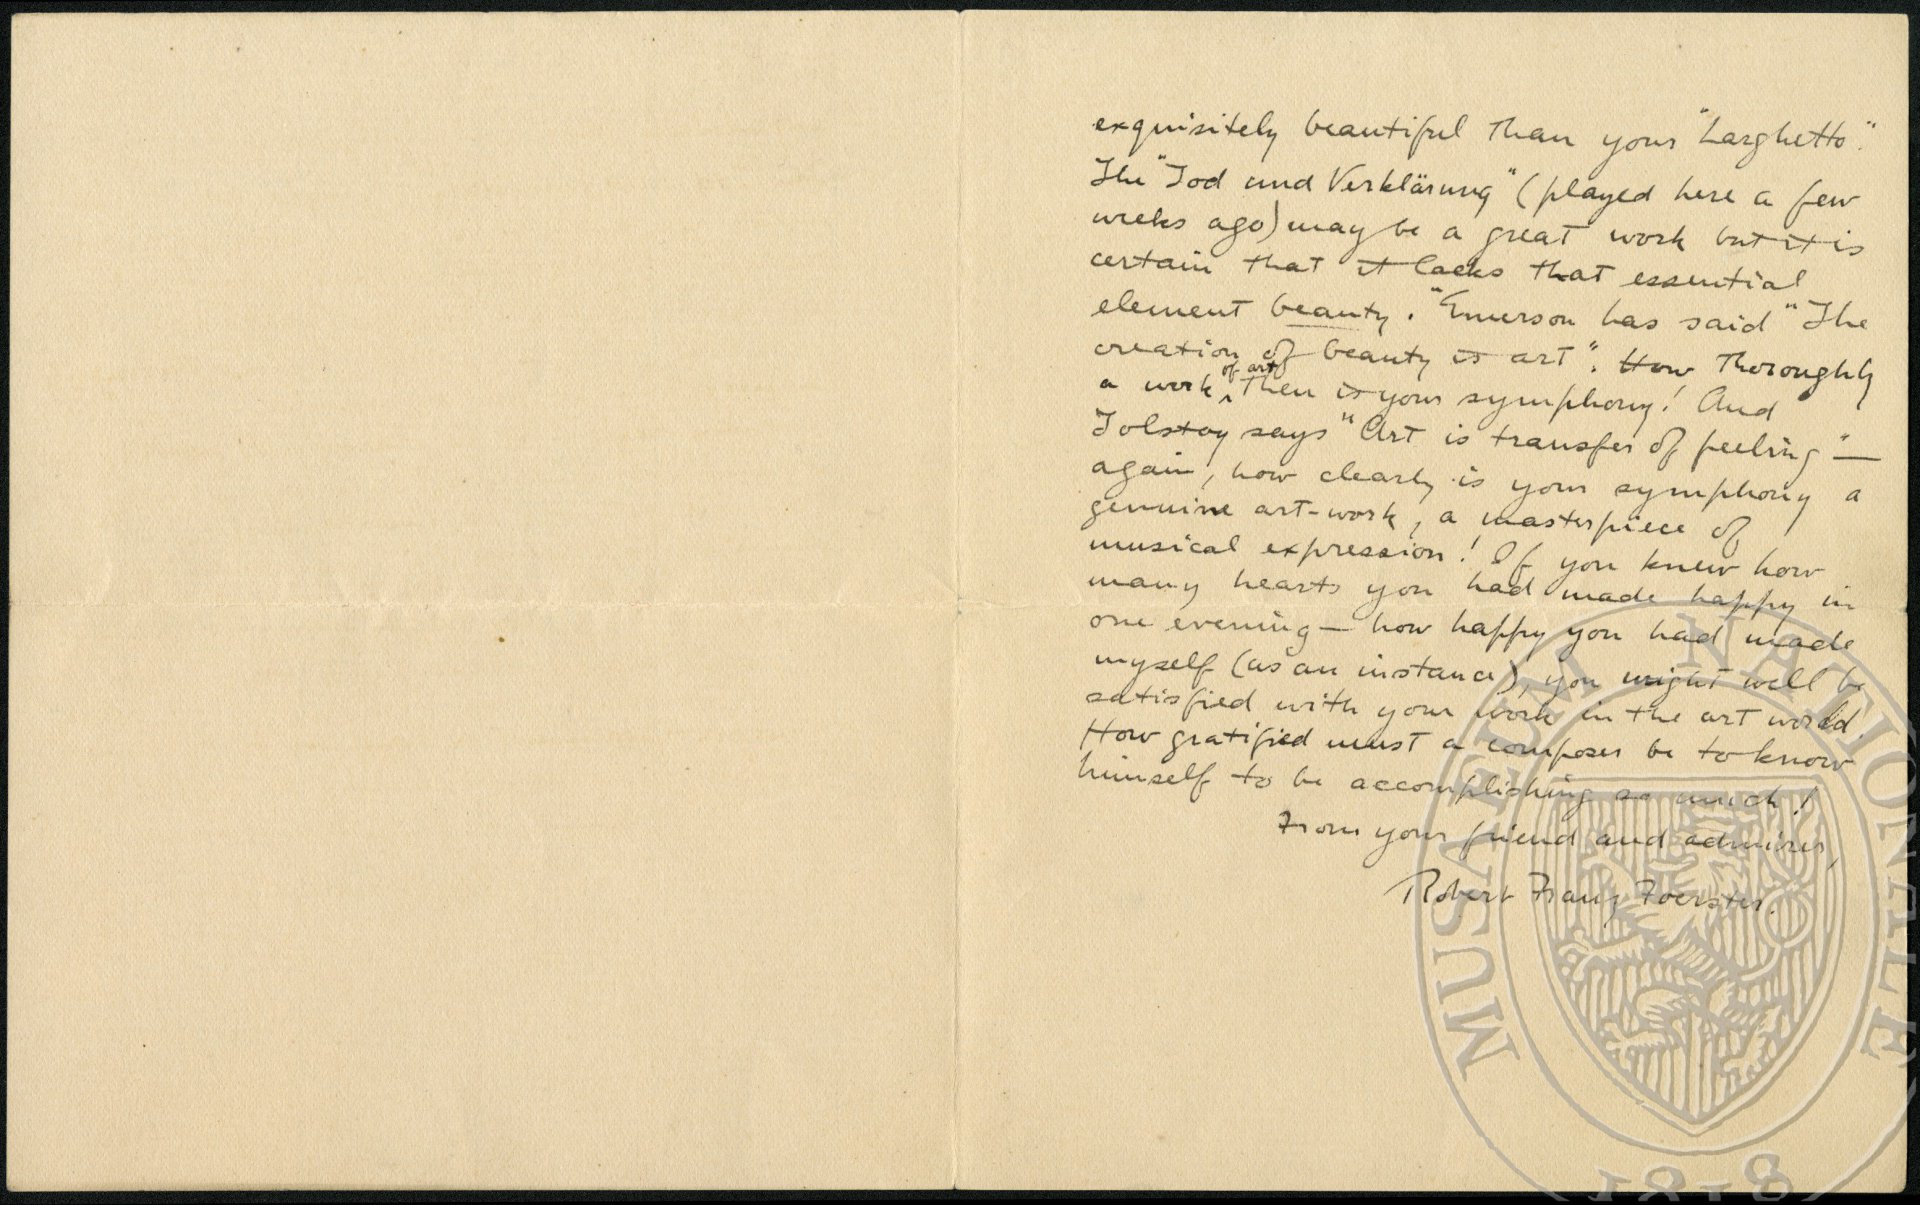 exquisitely beautiful than your "Larghetto".
The "Tod und Verklärung" (played here a few
weeks ago) may be a great work but it is
certain that it lacks that essential
element beauty. "Emerson has said "The
creation of beauty is art". How thoroughly
a work of art then is your symphony! And
Tolstoy says "Art is transfer of feeling" —
again, how clearly is your symphony a
genuine art-work, a masterpiece of
musical expression! If you knew how
many hearts you had made happy in
one evening — how happy you had made
myself (as an instance), you might well be
satisfied with your work in the art world.
How gratified must a composer be to know
himself to be accomplishing so much!
From your friend and admirer,
Robert Franz Foerster.
MUSAEUM NATIONALE
1818